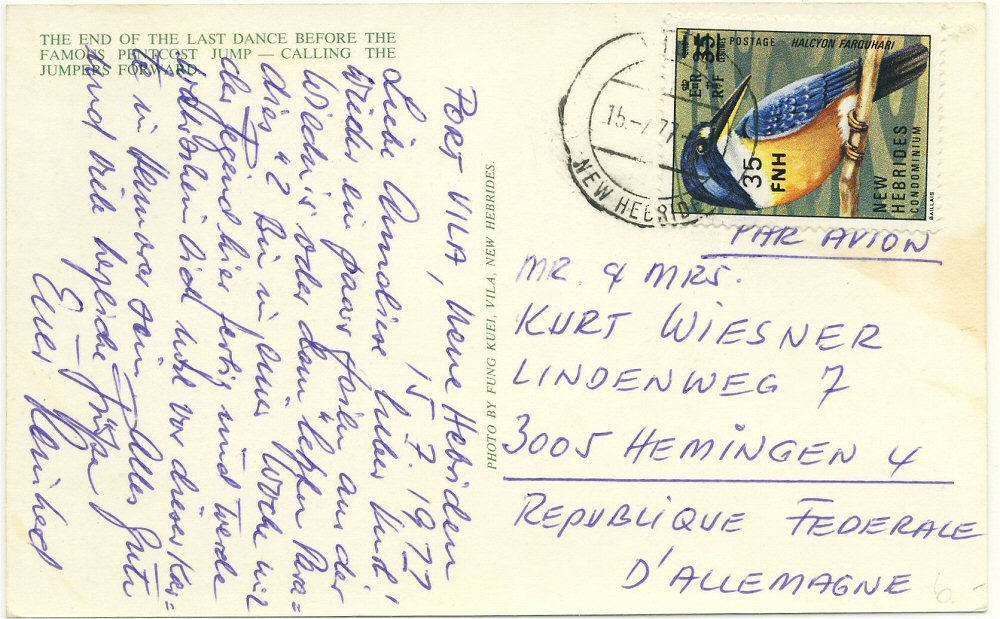 THE END OF THE LAST DANCE BEFORE THE
FAMOUS PENTCOST JUMP — CALLING THE
JUMPERS FORWARD.
PORT VILA, Neue Hebriden
15.7.1977
Liebe Anneliese lieber Kurd!
Wieder ein paar Zeilen aus der
Wildnis oder dem "letzten Para=
dies". Bin in einer Woche mit
der Gegend hier fertig und werde
wahrscheinlich wohl vor dieser Kar=
te in Hannover sein. Alles Gute
und viele herzliche Grüße
Euer
PHOTO BY FUNG KUEI, VILA, NEW HEBRIDES.
15.-7.77
NEW HEBRIDES
POSTAGE
HALCYON FARQUHARI
E II R
RF
35
FNH
NEW
HEBRIDES
CONDOMINIUM
BAILLAIS
PAR AVION
MR. & MRS.
KURT WIESNER
LINDENWEG 7
3005 HEMINGEN 4
REPUBLIQUE FEDERALE
D'ALLEMAGNE
6.-